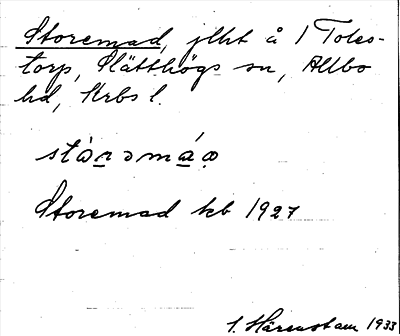 Storemad, jlht å 1 Toles-
torp, Slätthögs sn, Allbo
hd, Krbs l.
stòrəmáa
Storemad kb 1927
S. Härenstam 1933